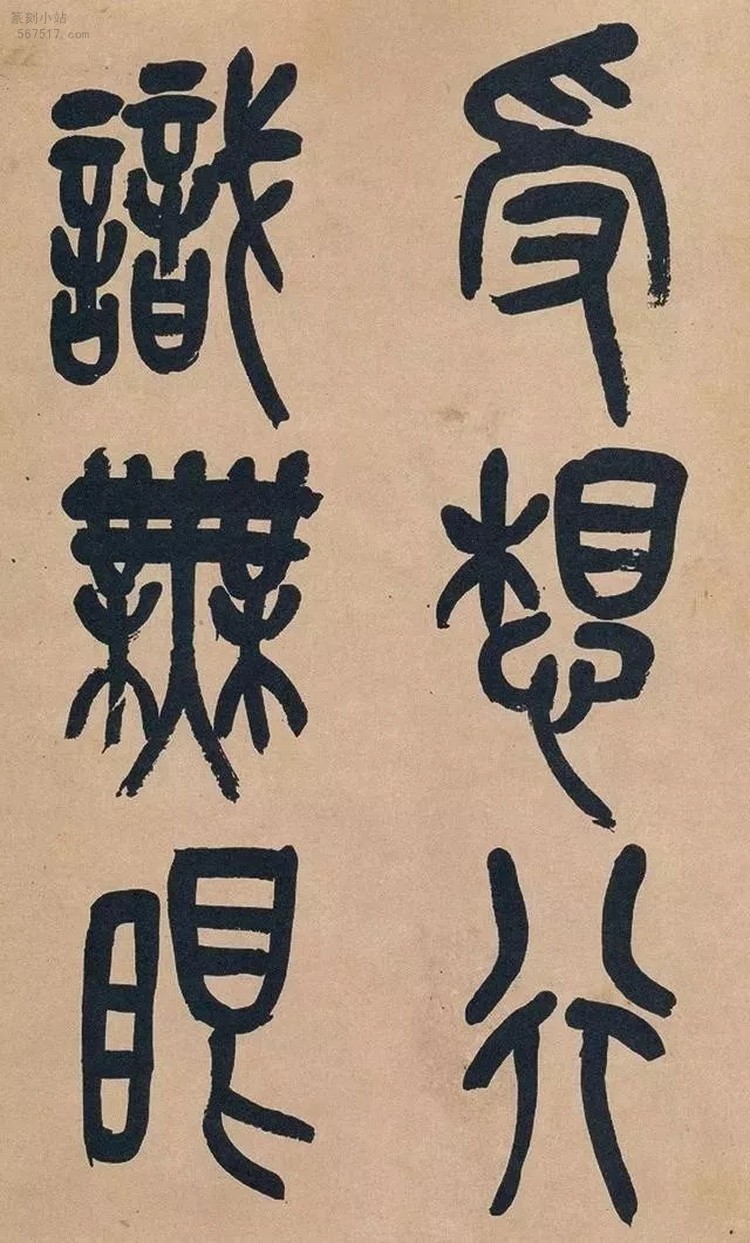 受想行
識無眼
篆刻小站
567517.com